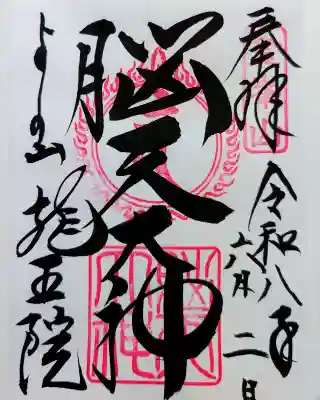 奉拝
令和八年
六月二日
脳天大神
よしの山 龍王院